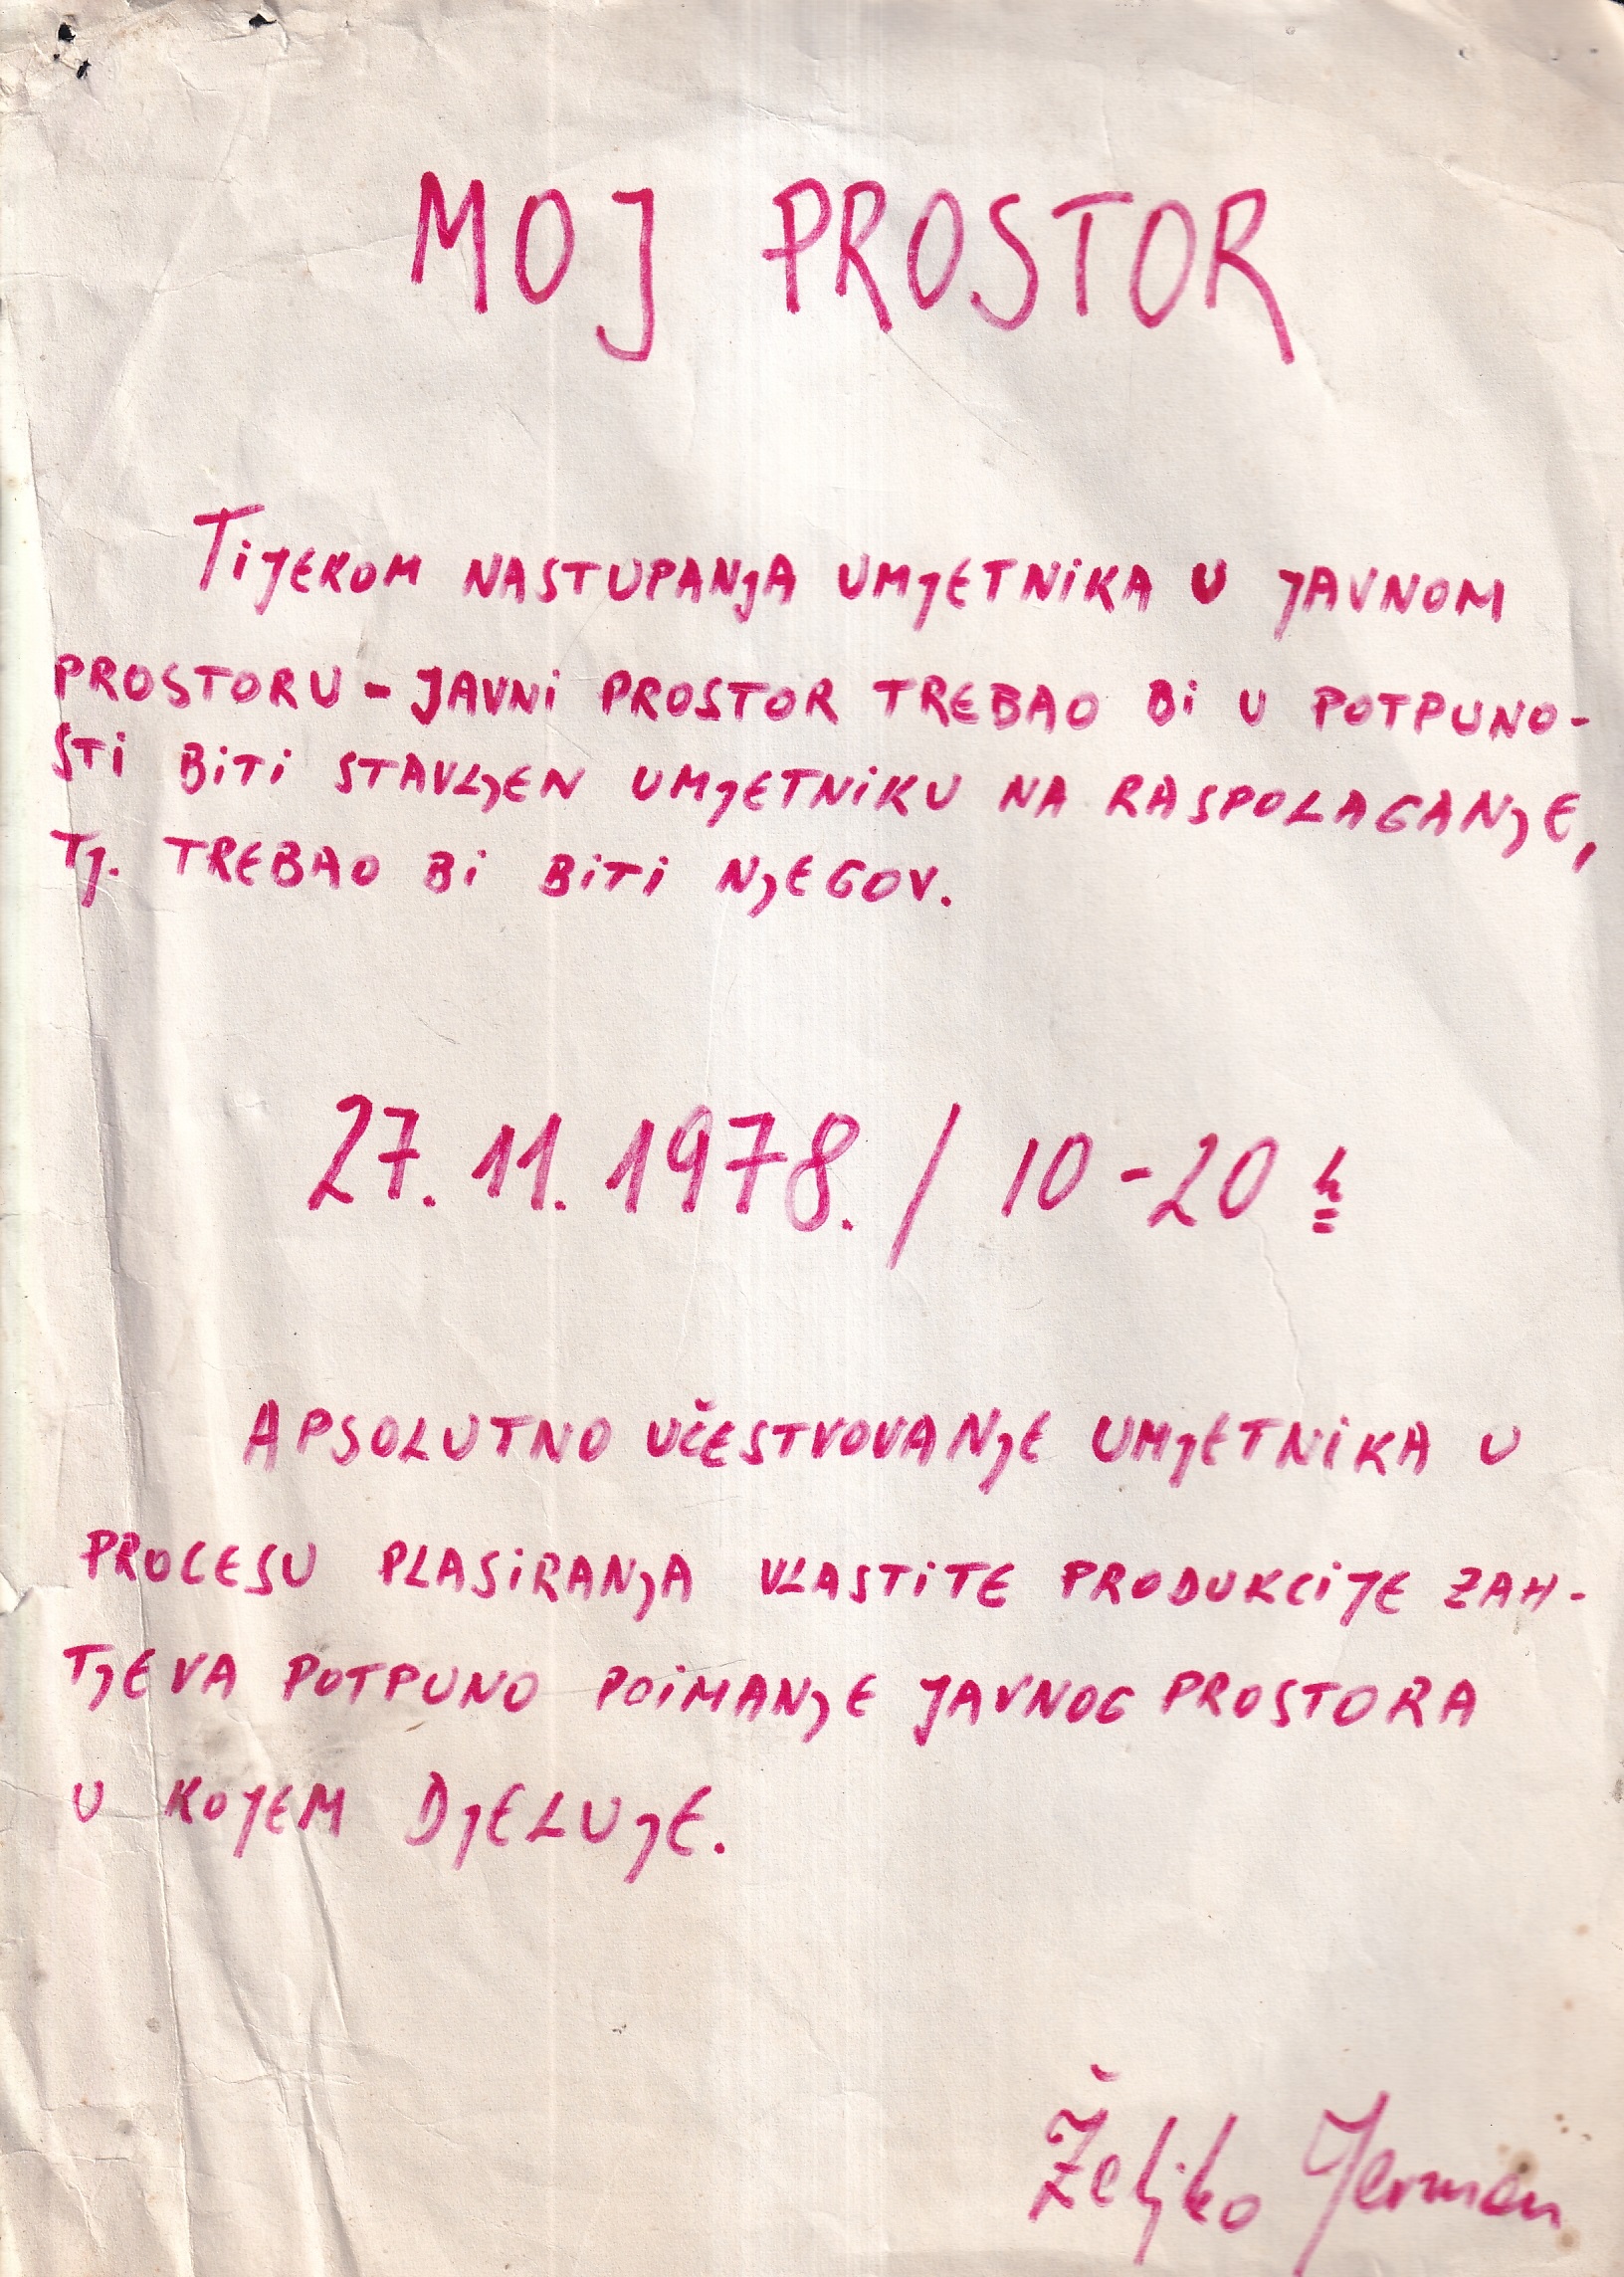 MOJ PROSTOR
TIJEKOM NASTUPANJA UMJETNIKA U JAVNOM
PROSTORU - JAVNI PROSTOR TREBAO BI U POTPUNO-
STI BITI STAVLJEN UMJETNIKU NA RASPOLAGANJE,
TJ. TREBAO BI BITI NJEGOV.
27. 11. 1978. / 10 - 20 h
APSOLUTNO UČESTVOVANJE UMJETNIKA U
PROCESU PLASIRANJA VLASTITE PRODUKCIJE ZAH-
TJEVA POTPUNO POIMANJE JAVNOG PROSTORA
U KOJEM DJELUJE.
Željko Jerman